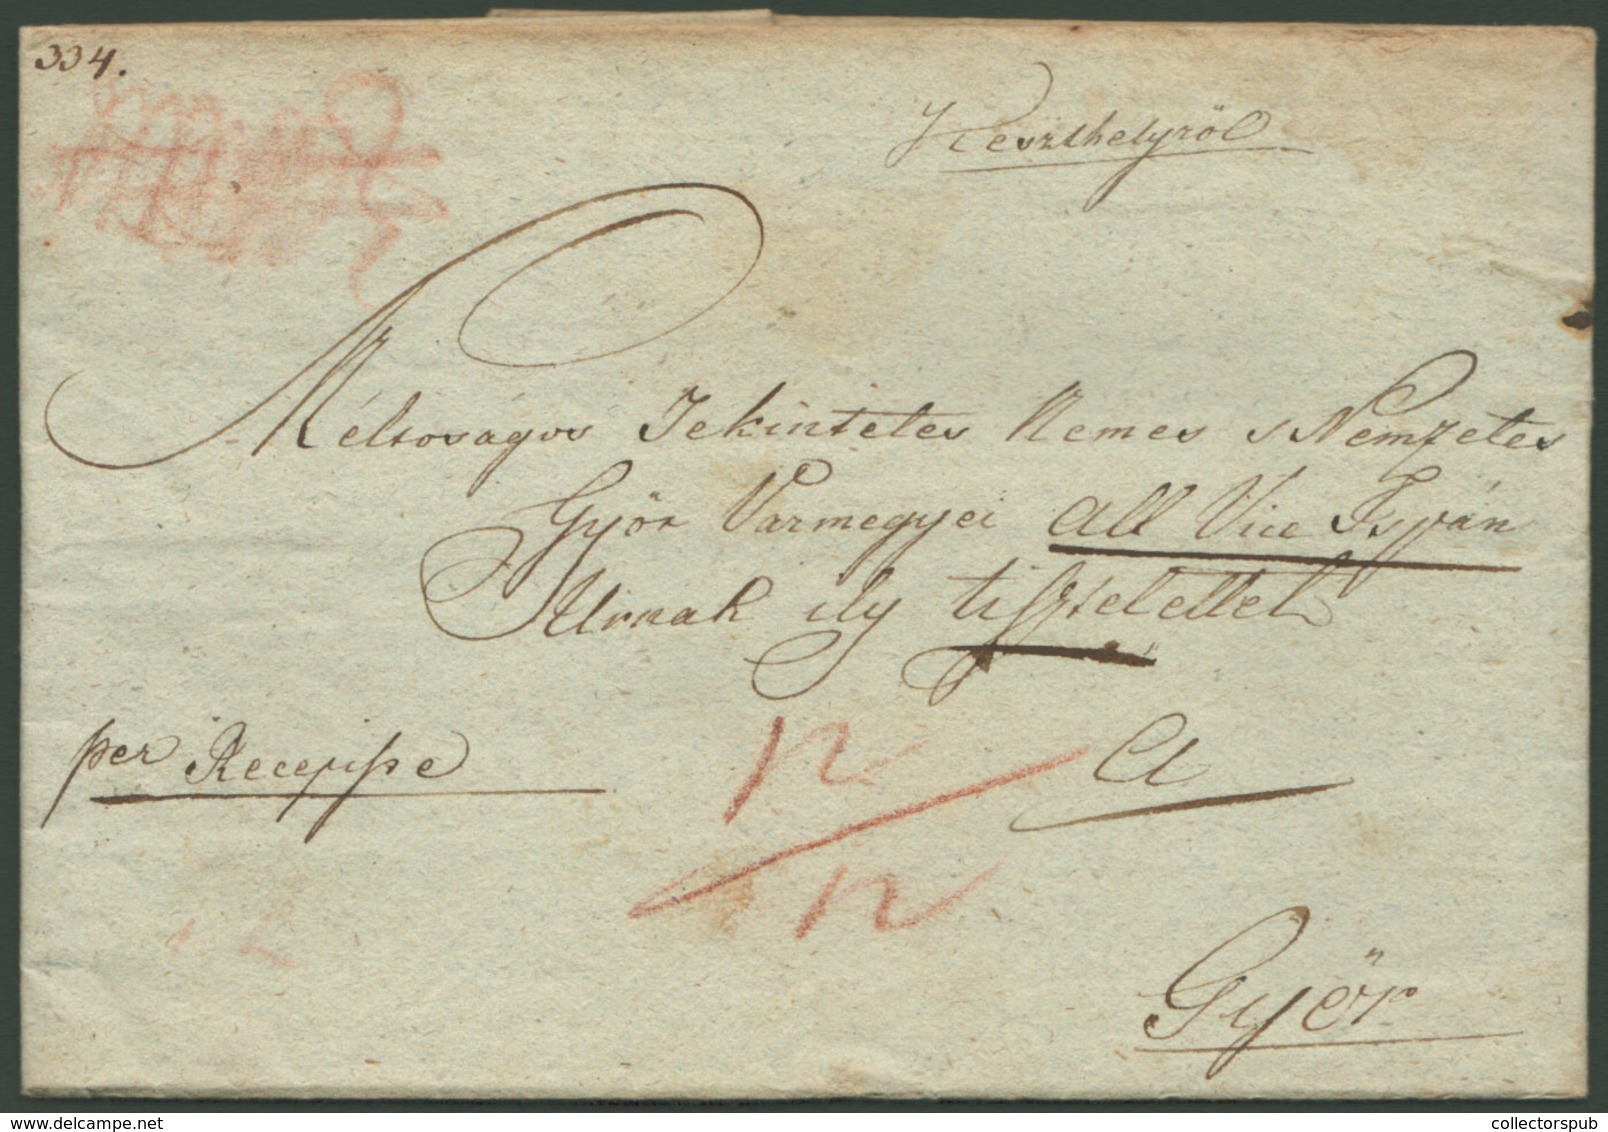 334.
Keszthelyröl
Méltoságos Tekintetes Nemes s Nemzetes
Györ Varmegyei All Vice Ispán
Urnak ily tisztelettel
per Recepisse
12
12
a
Györ
collectorspub